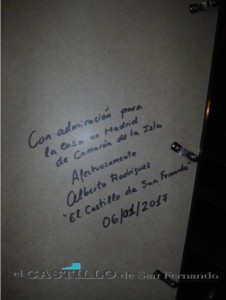 Con admiración para
la casa en Madrid
de Camarón de la Isla
Afectuosamente
Alberto Rodrigues
"El Castillo de San Fernando"
06/01/2017
el CASTILLO de San Fernando